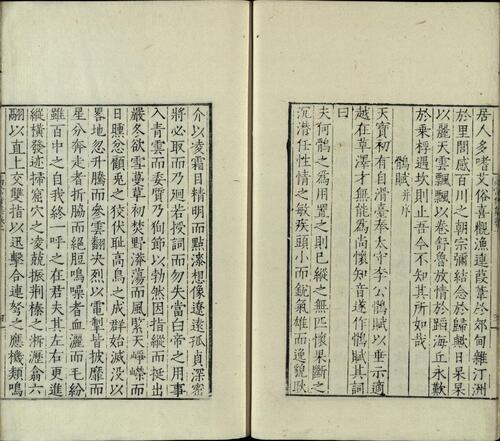 居人多嗜艾俗喜觀漁連葭葦於郊甸雜汀洲
於里閭感百川之朝宗彌結念於歸歟日杲杲
以麗天雲飄飄以卷舒魯放情於蹈海丘永歎
於乗桴遇坎則止吾今不知其所如哉
鶻賦并序
天寶初有自滑臺奉太守李公鶻賦以垂示適
越在草澤才無能爲尚懷知音遂作鶻賦其詞
曰
夫何鶻之爲用置之則已縱之無匹懷果斷之
沉潜任性情之敏疾頭小而銳氣雄而逸貌耿
介以凌霜目精明而點漆想像遼遠孤貞深密
將必取而乃廻若授詞而勿失當白帝之用事
入青雲而委質乃狥節以勃然因指縱而挺出
嚴冬欲雪蔓草初焚野漭蕩而風緊天崢嶸而
日曛忿顧兎之狡伏耻高鳥之成群始滅没以
畧地忽升騰而參雲翻决烈以電掣皆披靡而
星分奔走者折脇而絕脰鳴噪者血灑而毛紛
雖百中之自我終一呼之在君夫其左右更進
縱橫發迹掃窟穴之凌兢振荆榛之淅瀝翕六
翮以直上交雙指以迅擊合連弩之應機類鳴